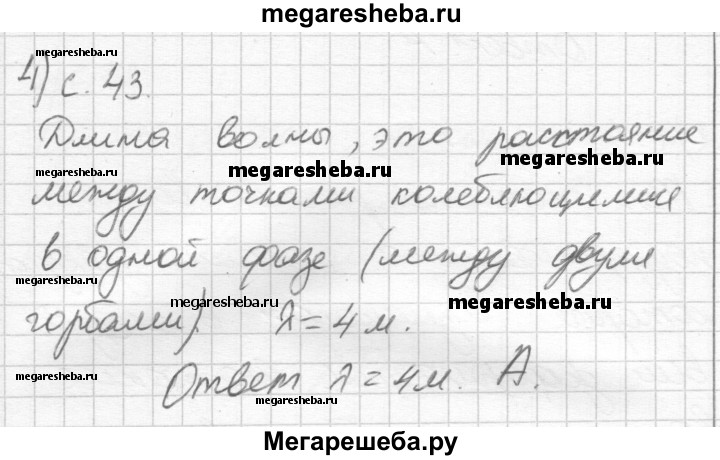 megaresheba.ru
megaresheba.ru
4) с. 43.
Длина волны, это расстояние
megaresheba.ru
megaresheba.ru
между точками колеблющимися
megaresheba.ru
в одной фазе (между двумя
megaresheba.ru
megaresheba.ru
megaresheba.ru
горбами). λ = 4 м.
megaresheba.ru
Ответ λ = 4 м. А.
megaresheba.ru
megaresheba.ru
Мегарешеба.ру